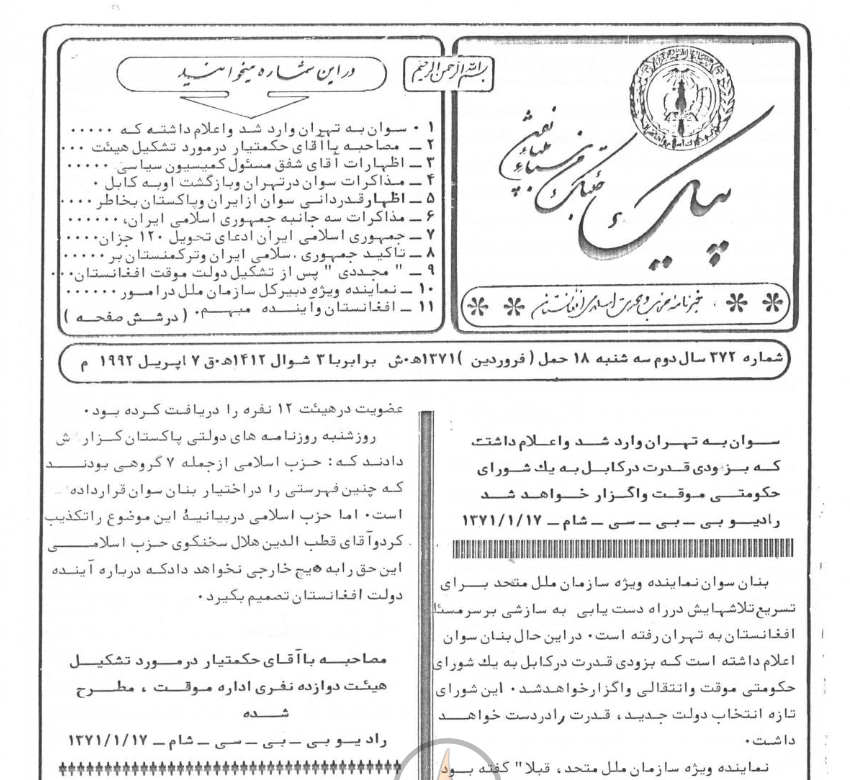 بسم الله الرحمن الرحیم
پیک
خبرنامه حزب وحدت اسلامی افغانستان
در این شماره میخوانید
۱ ـ سوان به تهران وارد شد واعلام داشته که ۰۰۰۰۰
۲ ـ مصاحبه باآقای حکمتیار درمورد تشکیل هیئت ۰۰۰
۳ ـ اظهارات آقای شفق مسئول کمیسیون سیاسی ۰۰۰۰۰
۴ ـ مذاکرات سوان درتهران وبازگشت اوبه کابل ۰
۵ ـ اظهارقدردانی سوان ازایران وپاکستان بخاطر ۰۰۰۰
۶ ـ مذاکرات سه جانبه جمهوری اسلامی ایران، ۰۰۰۰۰۰
۷ ـ جمهوری اسلامی ایران ادعای تحویل ۱۲۰ جزان۰۰۰۰۰
۸ ـ تاکید جمهوری .سلامی ایران وترکمنستان بر ۰۰۰۰۰
۹ ـ " مجددی " پس از تشکیل دولت موقت افغانستان۰۰۰
۱۰ ـ نماینده ویژه دبیرکل سازمان ملل درامور ۰۰۰۰۰۰
۱۱ ـ افغانستان وآینده مبهم۰ (درشش صفحه)
شماره ۳۷۲ سال دوم سه شنبه ۱۸ حمل (فروردین )۱۳۷۱ه‍۰ش برابربا ۳ شوال ۱۴۱۲ه‍۰ق ۷ اپریل ۱۹۹۲ م
سوان به تهران وارد شد واعلام داشتت
که بزودی قدرت درکابل به یك شورای
حکومتی موقت واگزار خواهد شد
رادیو بی ـ بی ـ سی ـ شام ـ ۱۳۷۱/۱/۱۷
بنان سوان نماینده ویژه سازمان ملل متحد برای
تسریع تلاشهایش درراه دست یابی به سازشی برسرمسئا
افغانستان به تهران رفته است۰ دراین حال بنان سوان
اعلام داشته است که بزودی قدرت درکابل به یك شورای
حکومتی موقت وانتقالی واگزارخواهدشد۰ این شورای
تازه انتخاب دولت جدید، قدرت رادردست خواهد
داشت۰
نماینده ویژه سازمان ملل متحد، قبلا" گفته بود
عضویت درهیئت ۱۲ نفره را دریافت کرده بود۰
روزشنبه روزنامه های دولتی پاکستان گزارش
دادند که: حزب اسلامی ازجمله ۷ گروهی بودند
که چنین فهرستی را دراختیار بنان سوان قرارداده
است۰ اما حزب اسلامی دربیانیهٔ این موضوع راتکذیب
کردوآقای قطب الدین هلال سخنگوی حزب اسلامی
این حق رابه هیچ خارجی نخواهد دادکه درباره آینده
دولت افغانستان تصمیم بگیرد۰
مصاحبه باآقای حکمتیار درمورد تشکیل
هیئت دوازده نفری اداره موقت ، مطرح
شده
رادیو بی ـ بی ـ سی ـ شام ـ ۱۳۷۱/۱/۱۷